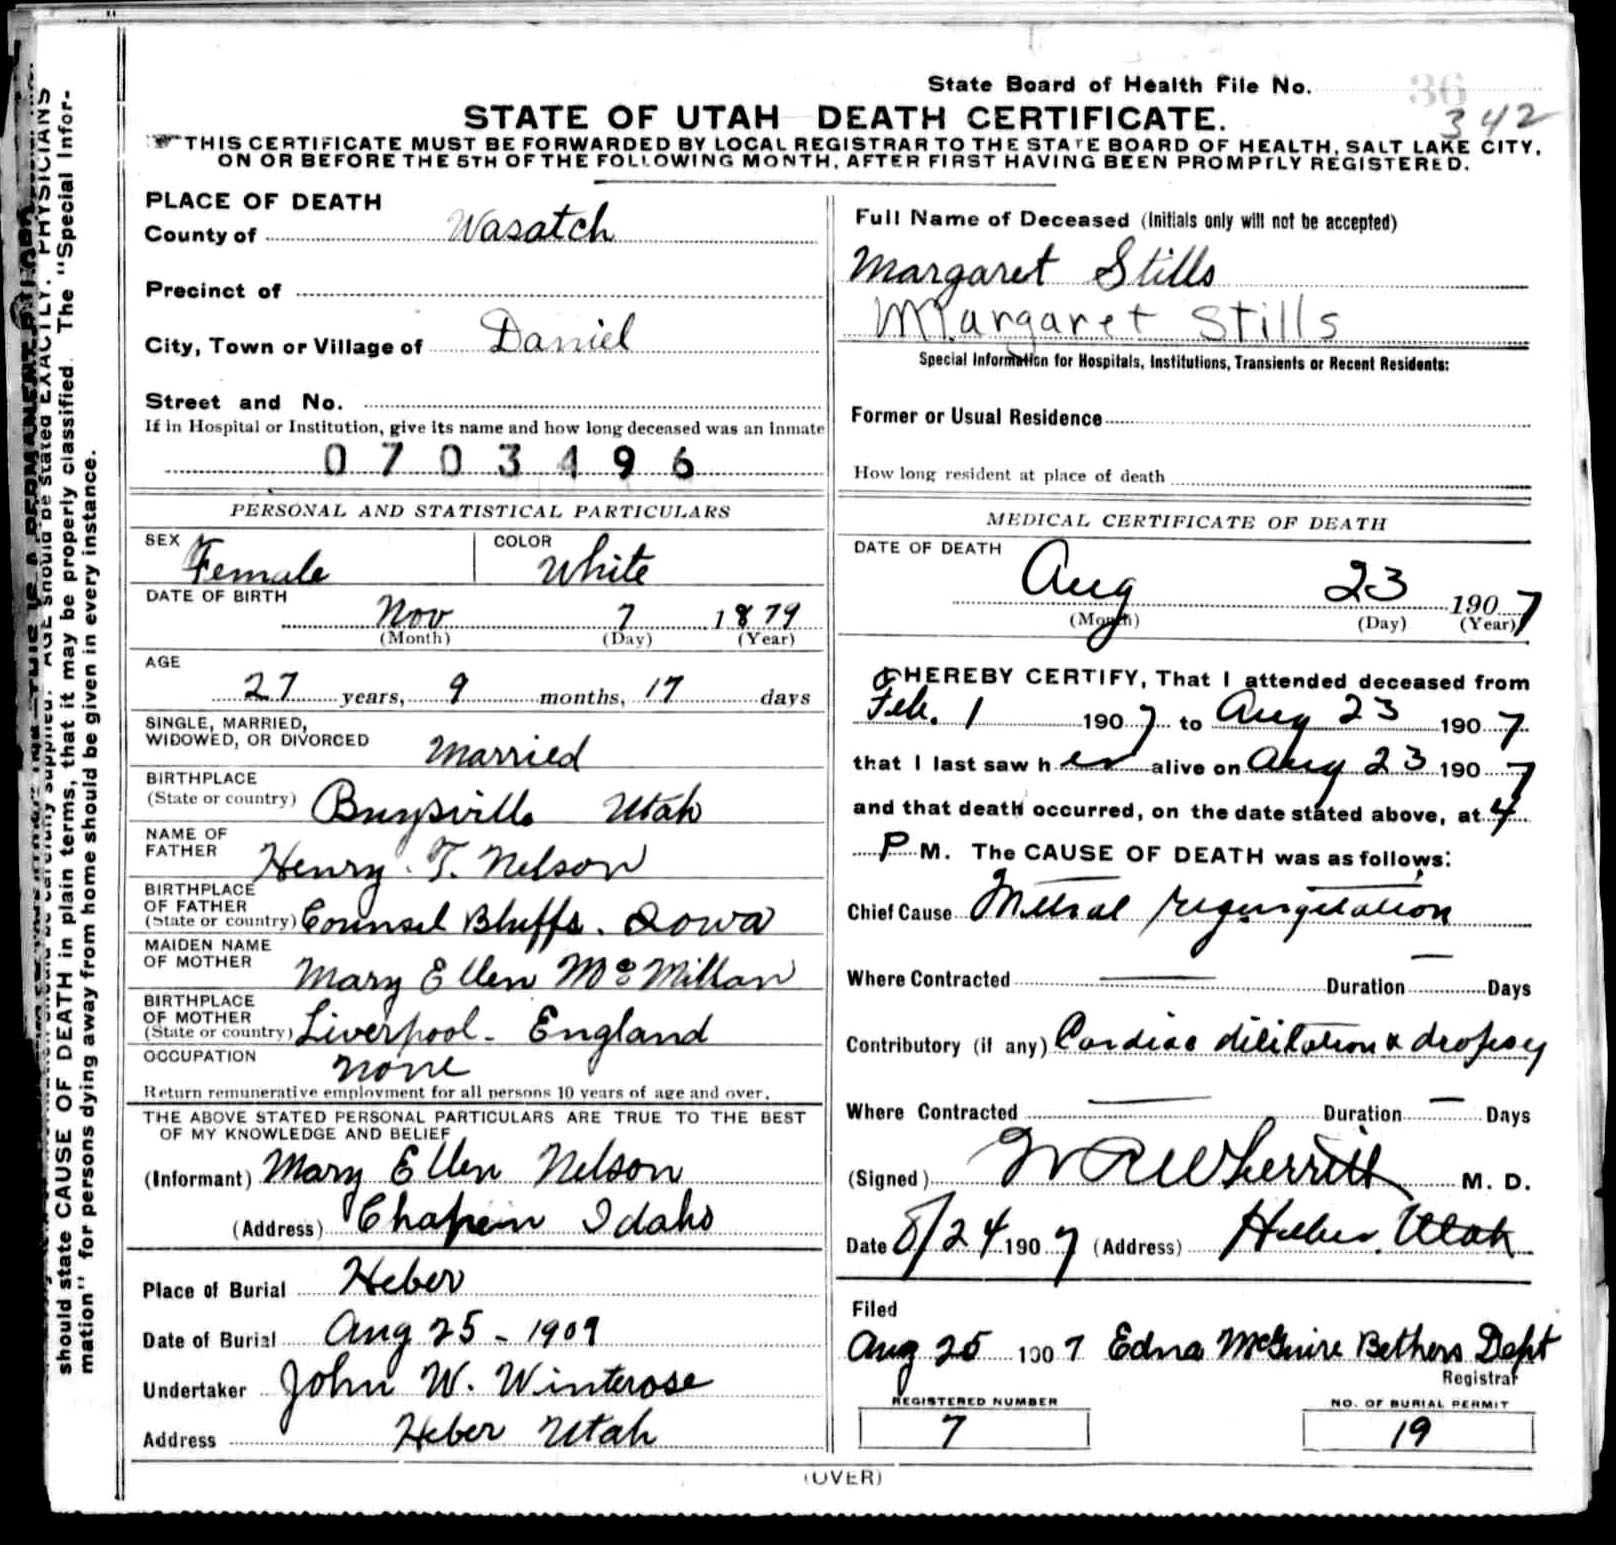 State Board of Health File No. 36
342
STATE OF UTAH DEATH CERTIFICATE.
THIS CERTIFICATE MUST BE FORWARDED BY LOCAL REGISTRAR TO THE STATE BOARD OF HEALTH, SALT LAKE CITY,
ON OR BEFORE THE 5TH OF THE FOLLOWING MONTH, AFTER FIRST HAVING BEEN PROMPTLY REGISTERED.
PLACE OF DEATH
County of Wasatch
Precinct of
City, Town or Village of Daniel
Street and No.
If in Hospital or Institution, give its name and how long deceased was an inmate
0703496
PERSONAL AND STATISTICAL PARTICULARS
SEX Female COLOR White
DATE OF BIRTH
Nov 7 1879
(Month) (Day) (Year)
AGE
27 years, 9 months, 17 days
SINGLE, MARRIED,
WIDOWED, OR DIVORCED Married
BIRTHPLACE
(State or country) Buysville Utah
NAME OF
FATHER Henry T. Nelson
BIRTHPLACE
OF FATHER
(State or country) Counsel Bluffs. Iowa
MAIDEN NAME
OF MOTHER Mary Ellen McMillan
BIRTHPLACE
OF MOTHER
(State or country) Liverpool - England
OCCUPATION none
Return remunerative employment for all persons 10 years of age and over.
THE ABOVE STATED PERSONAL PARTICULARS ARE TRUE TO THE BEST
OF MY KNOWLEDGE AND BELIEF
(Informant) Mary Ellen Nelson
(Address) Chapin Idaho
Place of Burial Heber
Date of Burial Aug 25 - 1907
Undertaker John W. Winterose
Address Heber Utah
Full Name of Deceased (Initials only will not be accepted)
Margaret Stills
Margaret Stills
Special Information for Hospitals, Institutions, Transients or Recent Residents:
Former or Usual Residence
How long resident at place of death
MEDICAL CERTIFICATE OF DEATH
DATE OF DEATH
Aug 23 1907
(Month) (Day) (Year)
I HEREBY CERTIFY, That I attended deceased from
Feb. 1 1907 to Aug 23 1907
that I last saw her alive on Aug 23 1907
and that death occurred, on the date stated above, at 4
P M. The CAUSE OF DEATH was as follows:
Chief Cause Mitral regurgitation
Where Contracted — Duration — Days
Contributory (if any) Cardiac dilitation & dropsey
Where Contracted — Duration — Days
(Signed) W R Wherritt M. D.
Date 8/24 1907 (Address) Heber, Utah
Filed
Aug 25 1907 Edna McGuire Bethers Dept
Registrar
REGISTERED NUMBER
7
NO. OF BURIAL PERMIT
19
(OVER)
should be stated EXACTLY. PHYSICIANS
should state CAUSE OF DEATH in plain terms, that it may be properly classified. The "Special Infor-
mation" for persons dying away from home should be given in every instance.